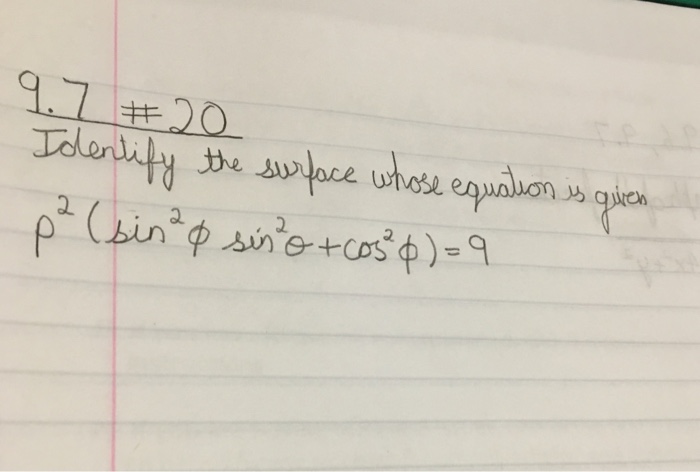 9.7 #20
Identify the surface whose equation is given
ρ² (sin²φ sin²θ + cos²φ) = 9